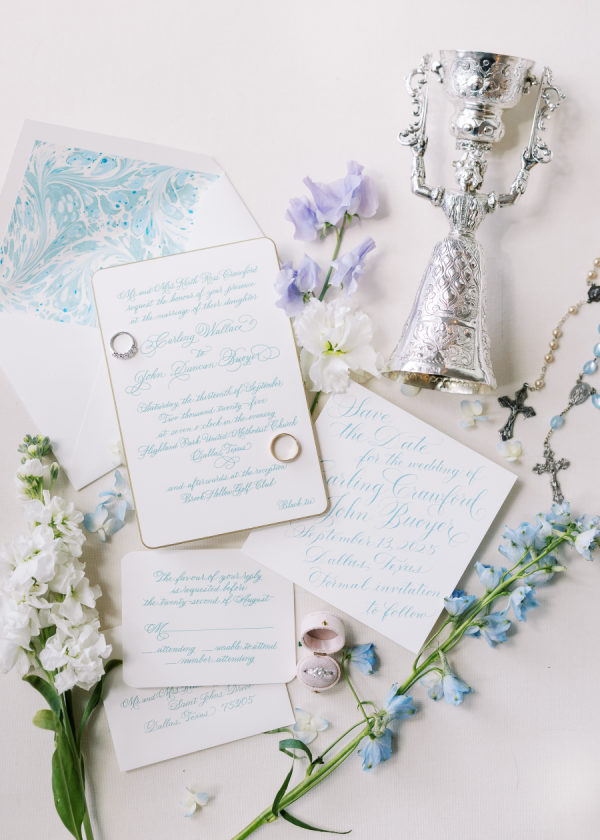 Mr. and Mrs. Keith Ross Crawford
request the honour of your presence
at the marriage of their daughter
Carling Wallace
to
John Duncan Bueyer
Saturday, the thirteenth of September
Two thousand twenty-five
at seven o'clock in the evening
Highland Park United Methodist Church
Dallas, Texas
and afterwards at the reception
Brook Hollow Golf Club
Black tie
Save
the Date
for the wedding of
Carling Crawford
John Bueyer
September 13, 2025
Dallas, Texas
Formal invitation
to follow
The favour of your reply
is requested before
the twenty-second of August
M
attending unable to attend
number attending
Mr. and Mrs.
Saint Johns Drive
Dallas, Texas 75205